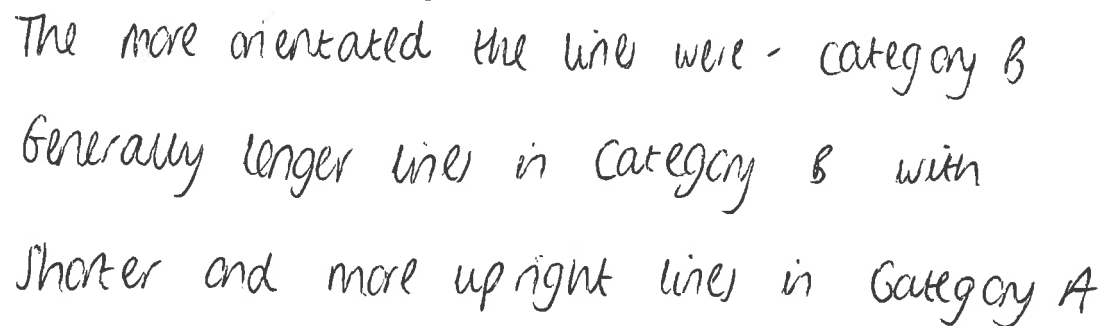 The more orientated the lines were - category B
Generally longer lines in Category B with
Shorter and more upright lines in Category A